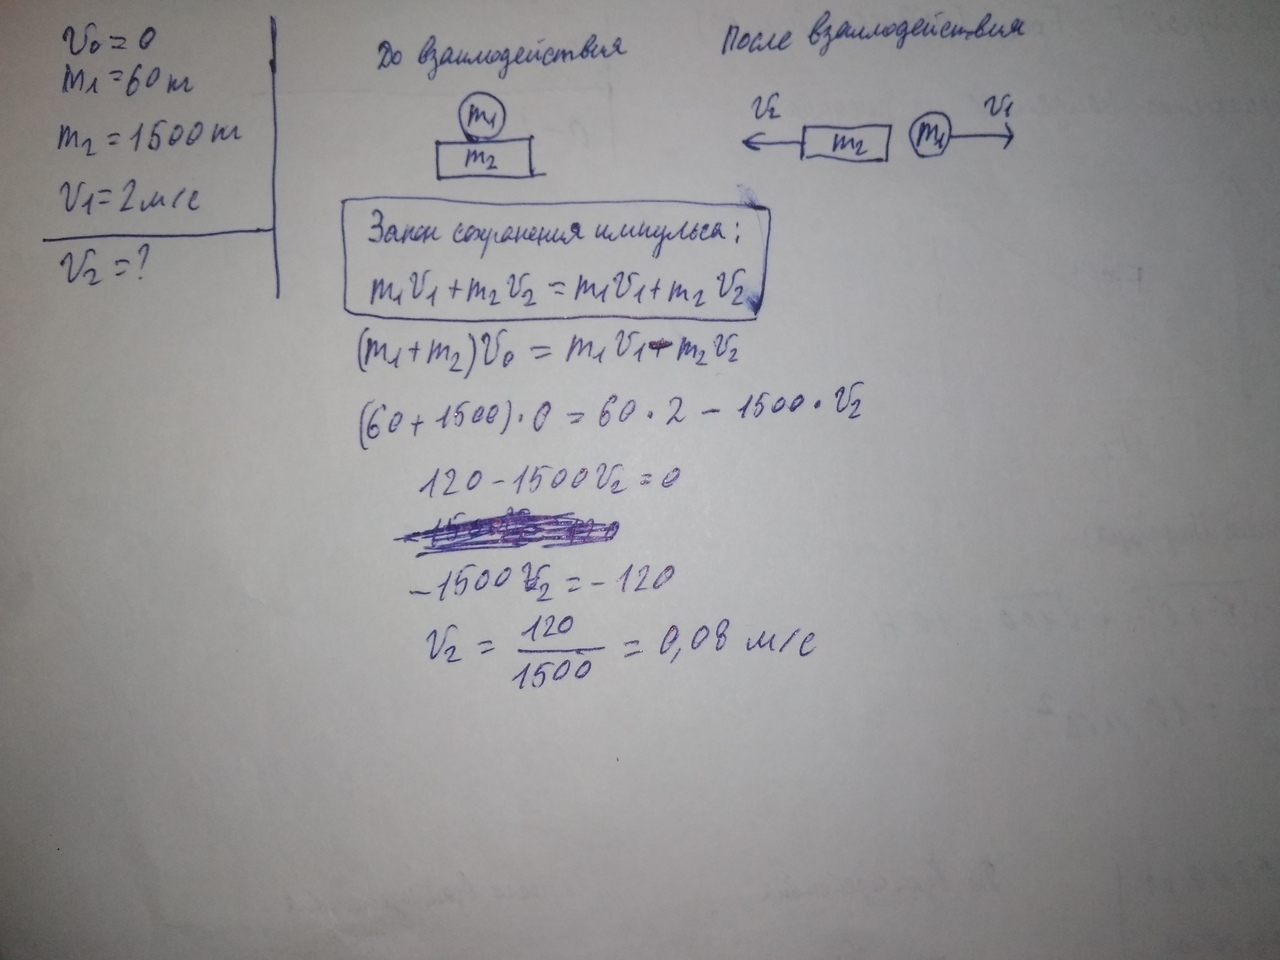 V₀ = 0
m₁ = 60 т
m₂ = 1500 т
V₁ = 2 м/с
V₂ = ?
До взаимодействия
m₁
m₂
После взаимодействия
V₂
V₁
m₂
m₁
Закон сохранения импульса:
m₁V₁ + m₂V₂ = m₁V₁ + m₂V₂
(m₁ + m₂)V₀ = m₁V₁ - m₂V₂
(60 + 1500) · 0 = 60 · 2 - 1500 · V₂
120 - 1500V₂ = 0
-1500V₂ = -120
V₂ = 120/1500 = 0,08 м/с